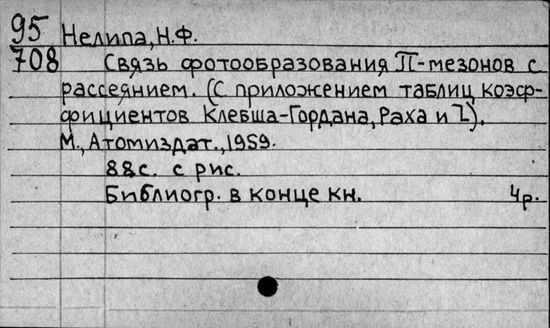 95 Нелипа, Н.Ф.
708 Связь фотообразования П-мезонов с
рассеянием. (С приложением таблиц коэф-
фициентов Клебша-Гордана, Раха и Z).
М., Атомиздат., 1959.
88с. с рис.
Библиогр. в конце кн. 4р.